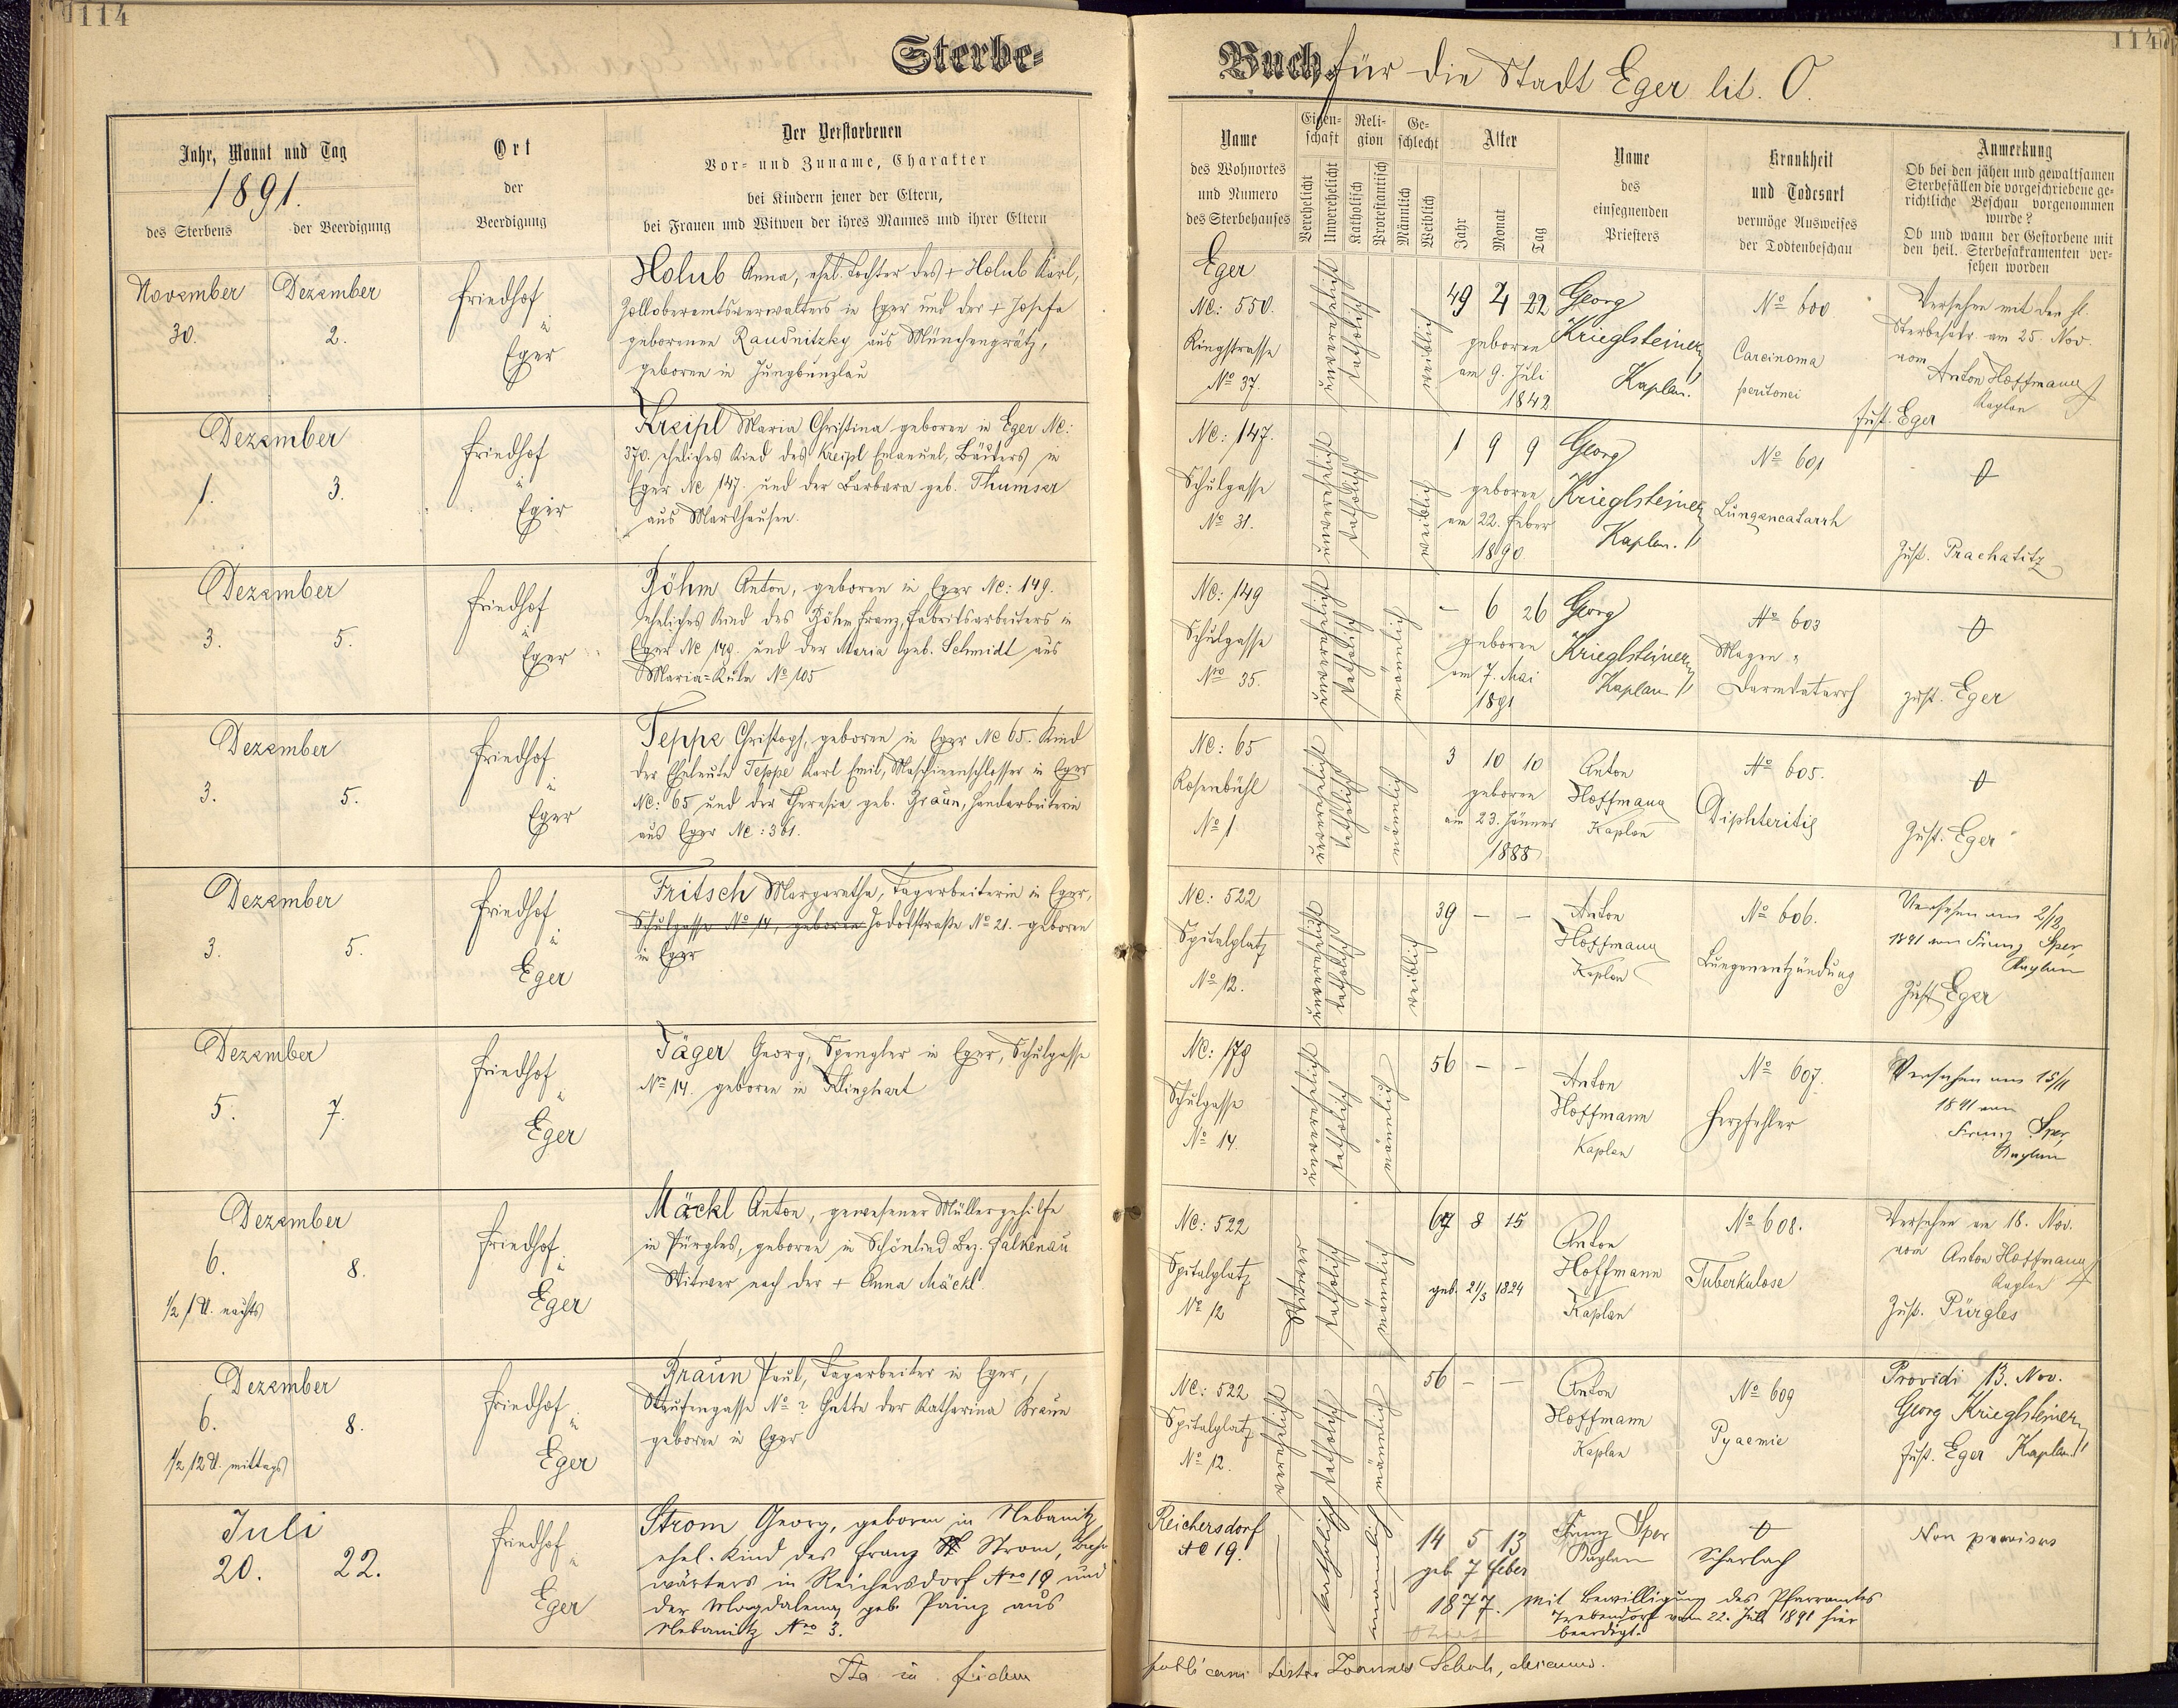 114
Sterbe-
Jahr, Monat und Tag
1891.
des Sterbens
der Beerdigung
Ort
der
Beerdigung
Der Verstorbenen
Vor- und Zuname, Charakter
bei Kindern jener der Eltern,
bei Frauen und Witwen der ihres Mannes und ihrer Eltern
November Dezember
30. 2.
Friedhof
in
Eger
Holub Anna, ehel. Tochter des + Holub Karl,
Zolloberamtsverwalters in Eger und der + Josefa
geborenen Raudnitzky aus Münchengrätz,
geboren in Jungbunzlau
Dezember
1. 3.
Friedhof
in
Eger
Kreipl Maria Christina geboren in Eger NC:
370. eheliches Kind des Kreipl Emanuel, in
Eger NC 147. und der Barbara geb. Thumser
aus Markhausen.
Dezember
3. 5.
Friedhof
in
Eger
Böhm Anton, geboren in Eger NC: 149.
eheliches Kind des Böhm Franz, Fabriksarbeiters in
Eger NC 149. und der Maria geb. Schmidt aus
Maria=Kulm No 105
Dezember
3. 5.
Friedhof
in
Eger
Teppe Christoph, geboren in Eger NC 65. Kind
der Eheleute Teppe Karl Emil, Maschinenschlosser in Eger
NC: 65 und der Theresia geb. Braun, Handarbeiterin
aus Eger NC: 361.
Dezember
3. 5.
Friedhof
in
Eger
Fritsch Margaretha, Tagarbeiterin in Eger,
Schulgasse No 14, geboren No 21. geboren
in Eger
Dezember
5. 7.
Friedhof
in
Eger
Täger Georg, Spengler in Eger, Schulgasse
No 14. geboren in Klinghart
Dezember
6. 8.
1/2 1 U. nachts
Friedhof
in
Eger
Mäckl Anton, gewesener Müllergehilfe
in Pürgles, geboren in Schönlind Bez. Falkenau
Witwer nach der + Anna Mäckl
Dezember
6. 8.
1/2 12 U. mittags
Friedhof
in
Eger
Braun Paul, Tagarbeiter in Eger,
No ? Gatte der Katharina Braun
geboren in Eger
Juli
20. 22.
Friedhof
in
Eger
Strom Georg, geboren in Nebanitz
ehel. Kind des Franz Strom, Bahn
wärters in Reichersdorf Nro 19 und
der Magdalena, geb. Painz aus
Nebanitz Nro 3.
Ita in fidem
114
Buch für die Stadt Eger lit. O.
Name
des Wohnortes
und Numero
des Sterbehauses
Eigenschaft
Verehelicht
Unverehelicht
Religion
Katholisch
Protestantisch
Geschlecht
Männlich
Weiblich
Alter
Jahr
Monat
Tag
Name
des
einsegnenden
Priesters
Krankheit
und Todesart
vermöge Ausweises
der Todtenbeschau
Anmerkung
Ob bei den jähen und gewaltsamen
Sterbefällen die vorgeschriebene ge-
richtliche Beschau vorgenommen
wurde?
Ob und wann der Gestorbene mit
den heil. Sterbesakramenten ver-
sehen worden
Eger
NC: 550.
Ringstrasse
No 37
unverehelicht
katholisch
weiblich
49 4 22
geboren
am 9. Juli
1842
Georg
Krieglsteiner
Kaplan.
No 600
Carcinoma
peritonei
Versehen mit den hl.
Sterbesakr. am 25. Nov.
vom
Anton Hoffmann
Kaplan
Zust. Eger
NC: 147.
Schulgasse
No 31.
unverehelicht
katholisch
weiblich
1 9 9
geboren
am 22. Feber
1890
Georg
Krieglsteiner
Kaplan.
No 601
Lungencatarrh
Zust. Prachatitz
NC: 149
Schulgasse
Nro 35.
unverehelicht
katholisch
männlich
- 6 26
geboren
am 7. Mai
1891
Georg
Krieglsteiner
Kaplan
No 603
Magen
Darmkatarrh
zust. Eger
NC: 65
Rosenbühl
No 1
unverehelicht
katholisch
männlich
3 10 10
geboren
am 23. Jänner
1888
Anton
Hoffmann
Kaplan
No 605.
Diphteritis
Zust. Eger
NC: 522
Spitalplatz
No 12.
unverehelicht
katholisch
weiblich
39 - -
Anton
Hoffmann
Kaplan
No 606.
Lungenentzündung
Versehen am 2/12
1891 von Franz Sper,
Kaplan
Zust. Eger
NC: 179
Schulgasse
No 14.
unverehelicht
katholisch
männlich
56 - -
Anton
Hoffmann
Kaplan
No 607.
Herzfehler
Versehen am 15/11
1891 von
Franz Sper,
Kaplan
NC: 522
Spitalplatz
No 12
Witwer
katholisch
männlich
67 8 15
geb. 21/3 1824
Anton
Hoffmann
Kaplan
No 608.
Tuberkulose
Versehen am 18. Nov.
vom Anton Hoffmann
Kaplan
Zust. Pürgles
NC: 522
Spitalplatz
No 12.
verehelicht
katholisch
männlich
56 - -
Anton
Hoffmann
Kaplan
No 609
Pyaemie
Providi 13. Nov.
Georg Krieglsteiner
Zust. Eger Kaplan
Reichersdorf
NC 19.
katholisch
männlich
14 5 13
geb 7 Feber
1877.
Franz Sper
Kaplan
Scharlach
Non provisus
mit Bewilligung des Pfarramtes
Trebendorf vom 22. Juli 1891 hier
beerdigt.
publicam Joannes